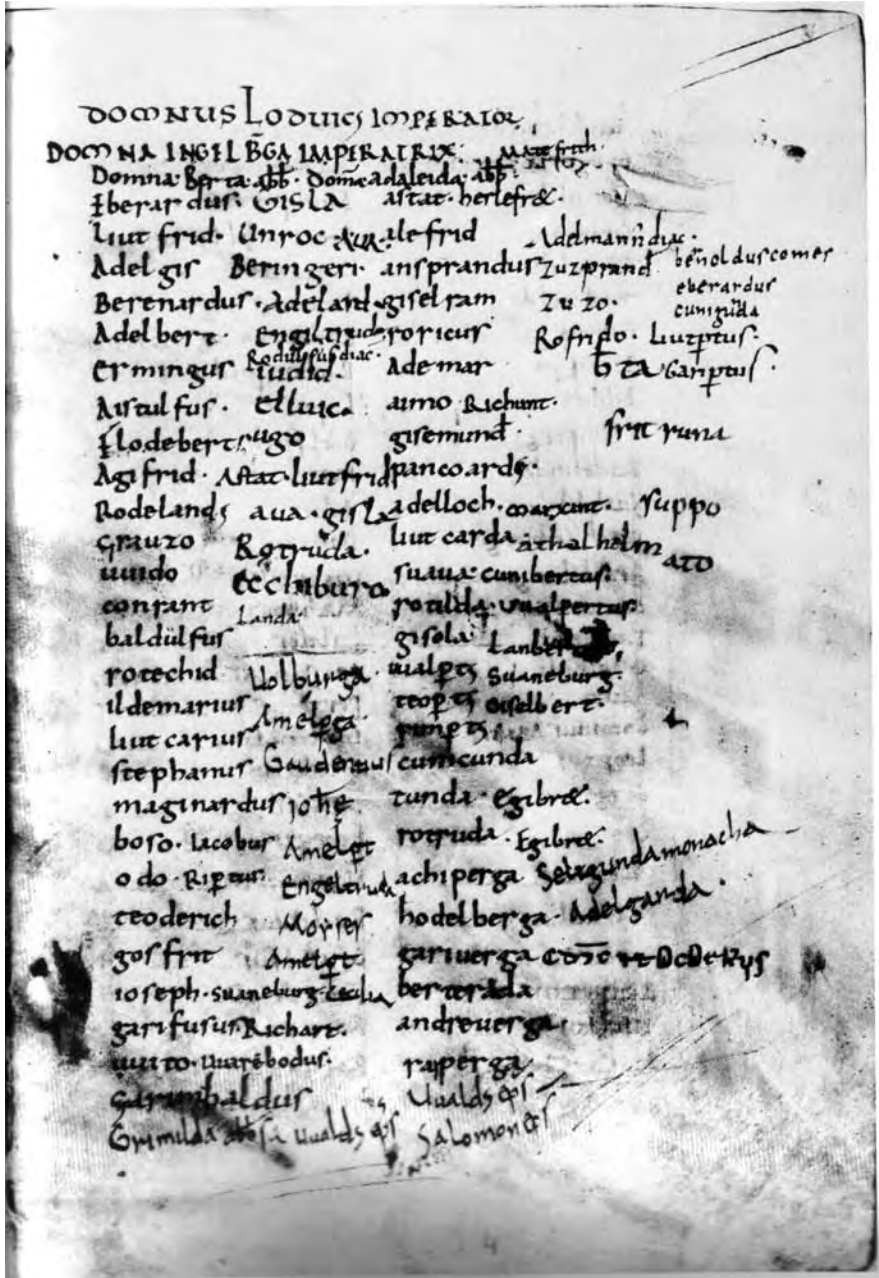 DOMNUS LODUICS IMPERATOR
DOMNA INGELBGA IMPERATRIX:
Domna Berta abb. Domna adaleida abb.
Eberardus. GISLA astat. herlefree.
Liutfrid. Unroc AUA. alefrid Adelmann diac.
Adelgis Beringeri. ansprandus Zuzprand benoldus comes
eberardus
Berenardus. Adelard. giselram Zuzo. cunigunda
Adelbert. Engiltruda roricus Rofrido. Liutptus.
Rodulfus diac.
Ermingus Iudid. Ademar bta Garptus.
Aistulfus. Elluic. aimo Richunt.
Flodebert. ugo gisemund. frit runa
Agifrid. Astat. liutfrid pancoards.
Rodelands aua. gisla adelloch. suppo
Grauzo Rotruda. liutcarda Athalhelm
ATO
uuido suaua. cunibertus.
conrant Landa. rotilda. uualpertus.
baldulfus gisola
rotechid Uolburga. ualpts Suaneburg.
ildemarius Amelpga. teopts Giselbert.
liutcarius
stephanus Gaudentius cunicunda
maginardus johe tunda. Egibree.
boso. Iacobus Amelpt rotruda. Egibree.
odo. Riptus. Engeltruda achiperga Selagunda monacha
teoderich Moyses hodelberga. Adelganda.
gosfrit Amelpt gariuerga
ioseph. suaneburg. Cecilia berterada
garifusus. Richart. andreuerga.
uuito. Uuarebodus. raperga.
Garimbaldus Uualds eps
Grimilda abbsa Uualds eps Salomon eps